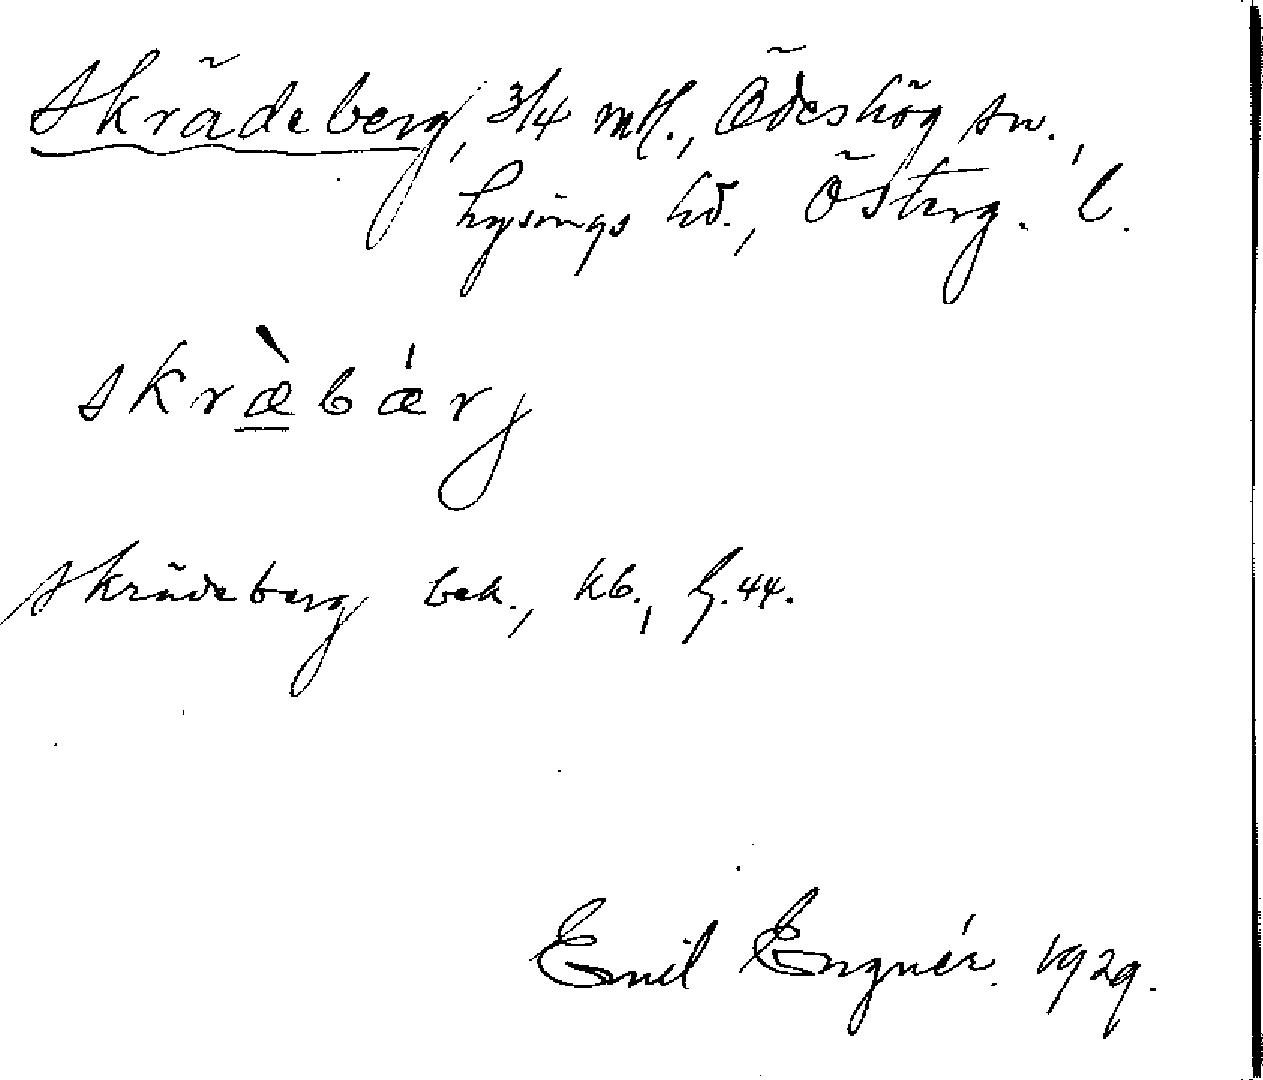 Skrädeberg, 3/4 mtl., Ödeshög sn.,
Lysings hd., Österg. l.
skræ̀bǽrj
Skrädeberg bek., kb., h. 44.
Emil Engnér. 1929.